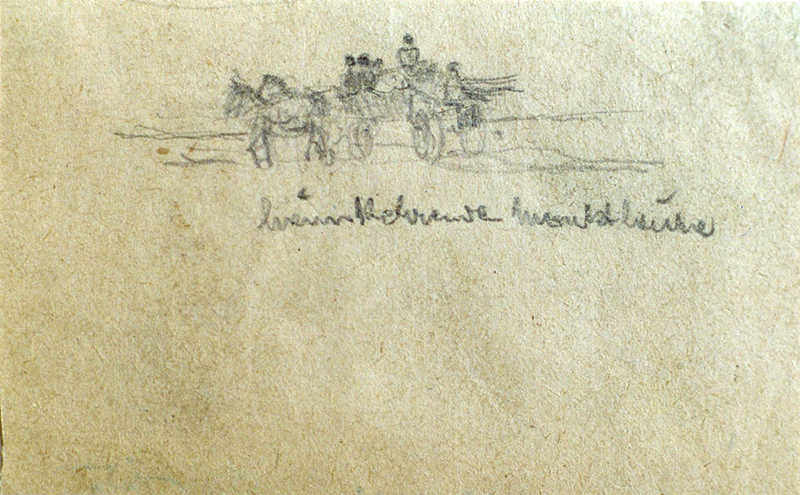 heimkehrende Marktleute